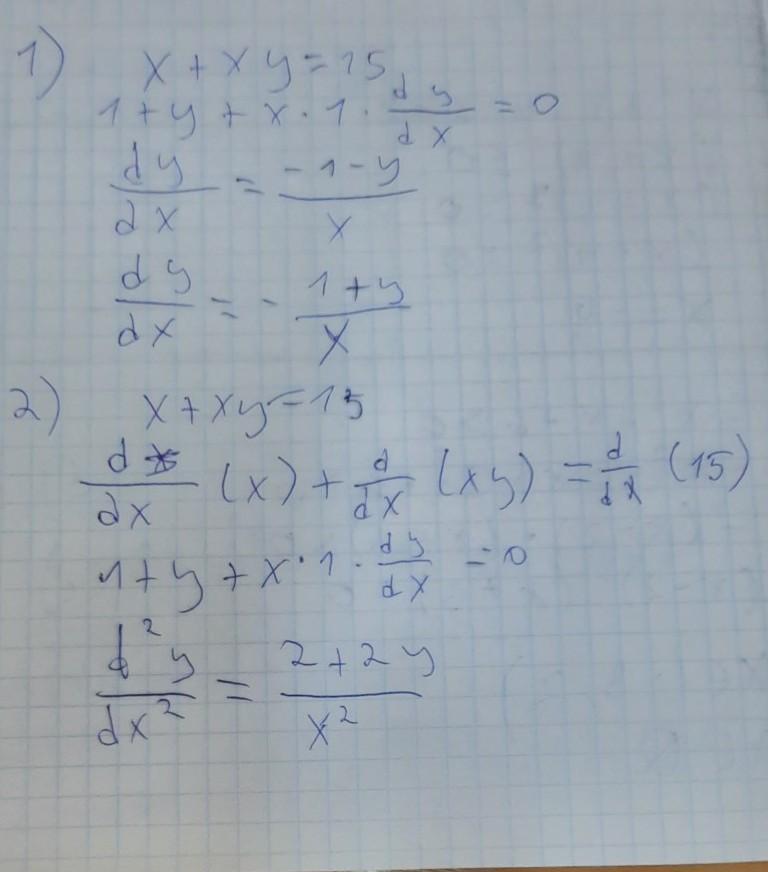 1) x + xy = 15
1 + y + x · 1 · dy/dx = 0
dy/dx = (-1-y)/x
dy/dx = - (1+y)/x
2) x + xy = 15
d/dx (x) + d/dx (xy) = d/dx (15)
1 + y + x · 1 · dy/dx = 0
d²y/dx² = (2+2y)/x²